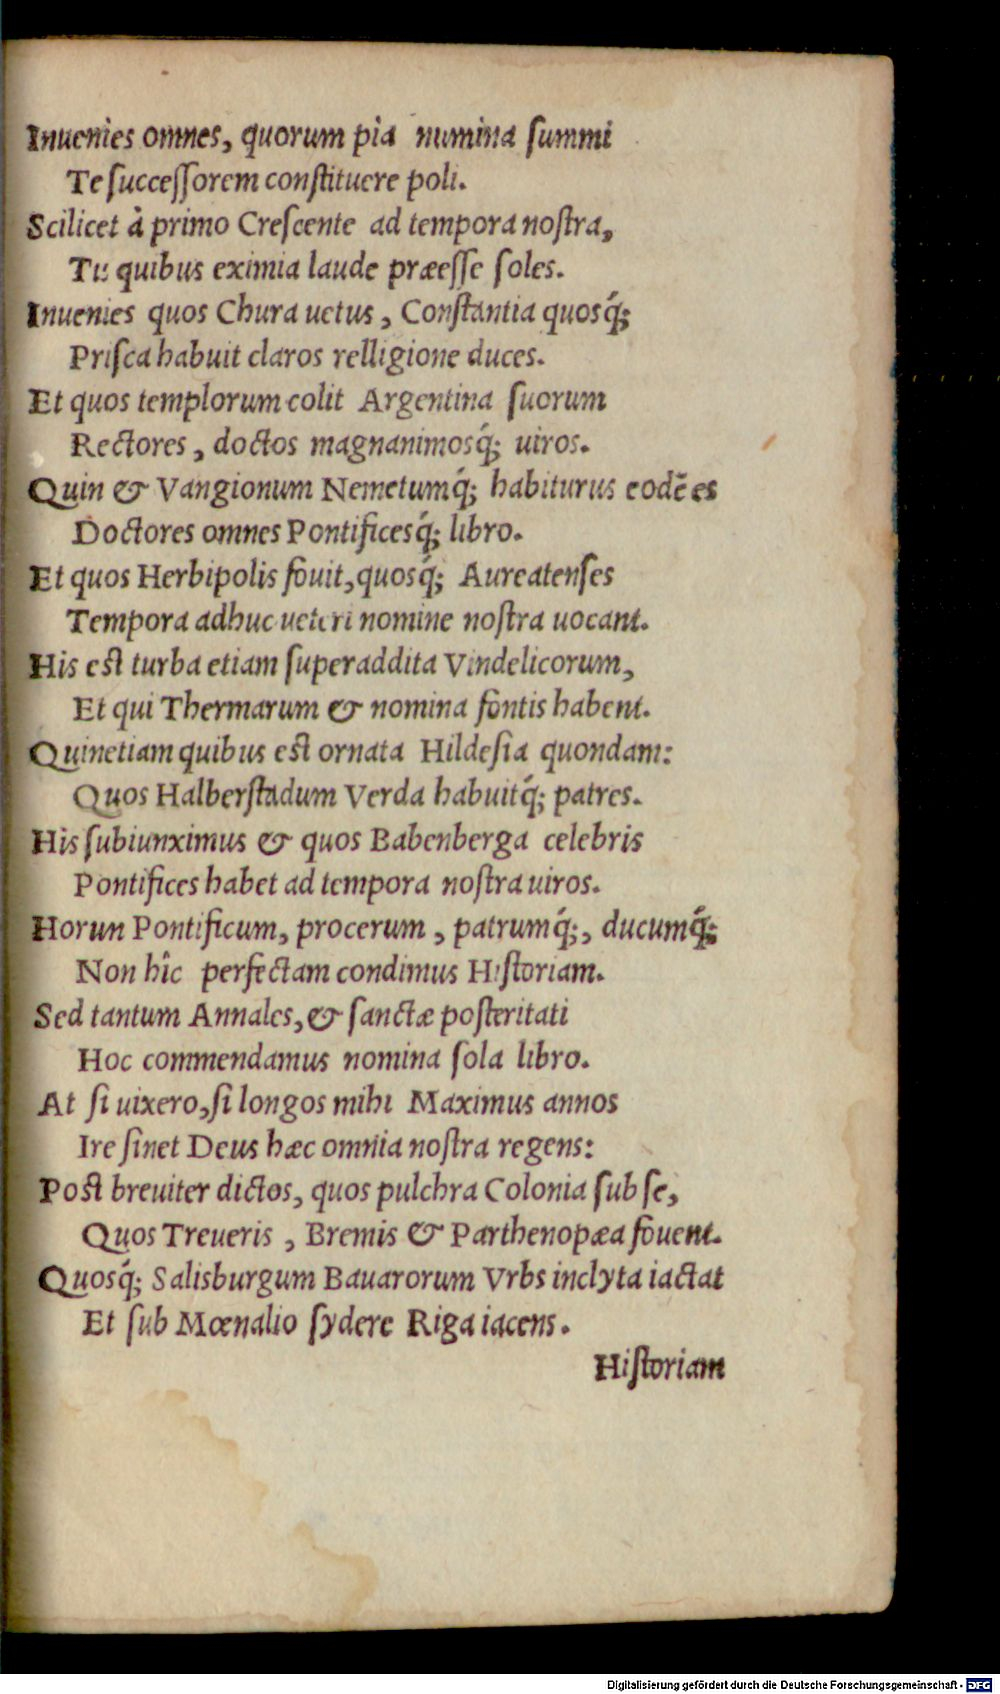 Inuenies omnes, quorum pia numina ſummi
Te ſucceſſorem conſtituere poli.
Scilicet à primo Creſcente ad tempora noſtra,
Tu quibus eximia laude præeſſe ſoles.
Inuenies quos Chura uetus, Conſtantia quosq́;
Priſca habuit claros relligione duces.
Et quos templorum colit Argentina ſuorum
Rectores, doctos magnanimosq́; uiros.
Quin & Vangionum Nemetumq́; habiturus eodē es
Doctores omnes Pontificesq́; libro.
Et quos Herbipolis fouit, quosq́; Aureatenſes
Tempora adhuc ueteri nomine noſtra uocant.
His eſt turba etiam ſuperaddita Vindelicorum,
Et qui Thermarum & nomina fontis habent.
Quinetiam quibus eſt ornata Hildeſia quondam:
Quos Halberſtadum Verda habuitq́; patres.
His ſubiunximus & quos Babenberga celebris
Pontifices habet ad tempora noſtra uiros.
Horun Pontificum, procerum, patrumq́;, ducumq́;
Non hîc perfectam condimus Hiſtoriam.
Sed tantum Annales, & ſanctæ poſteritati
Hoc commendamus nomina ſola libro.
At ſi uixero, ſi longos mihi Maximus annos
Ire ſinet Deus hæc omnia noſtra regens:
Poſt breuiter dictos, quos pulchra Colonia ſub ſe,
Quos Treueris, Bremis & Parthenopæa fouent.
Quosq́; Salisburgum Bauarorum Vrbs inclyta iactat
Et ſub Mœnalio ſydere Riga iacens.
Hiſtoriam
Digitalisierung gefördert durch die Deutsche Forschungsgemeinschaft - DFG